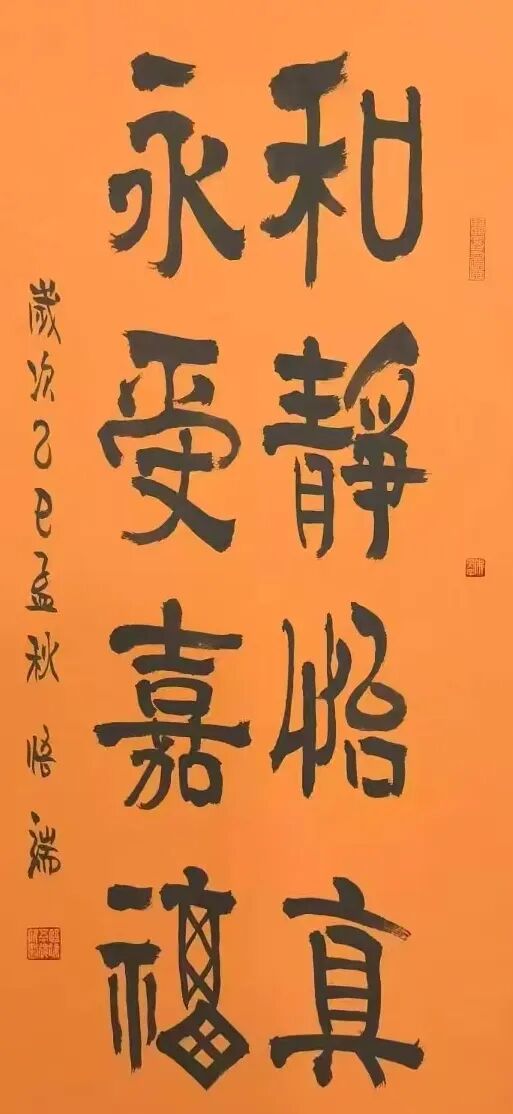 和靜怡真
永受嘉福
歲次乙巳孟秋 悟端